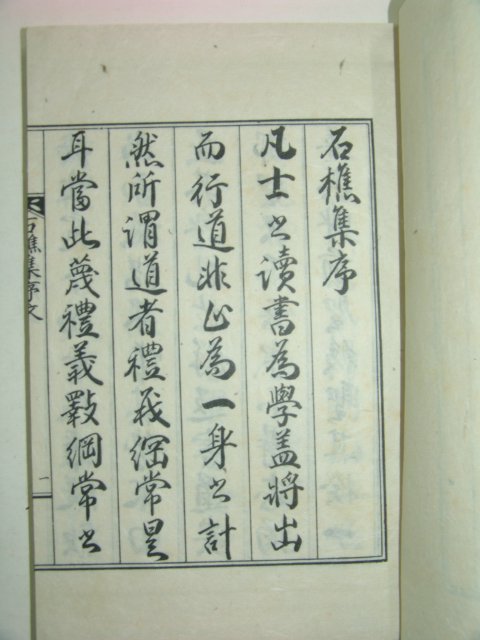 石樵集序
凡士之讀書爲學盖將出
而行道非止爲一身之計
然所謂道者禮義綱常是
耳當此蔑禮義斁綱常之
石樵集序文
一